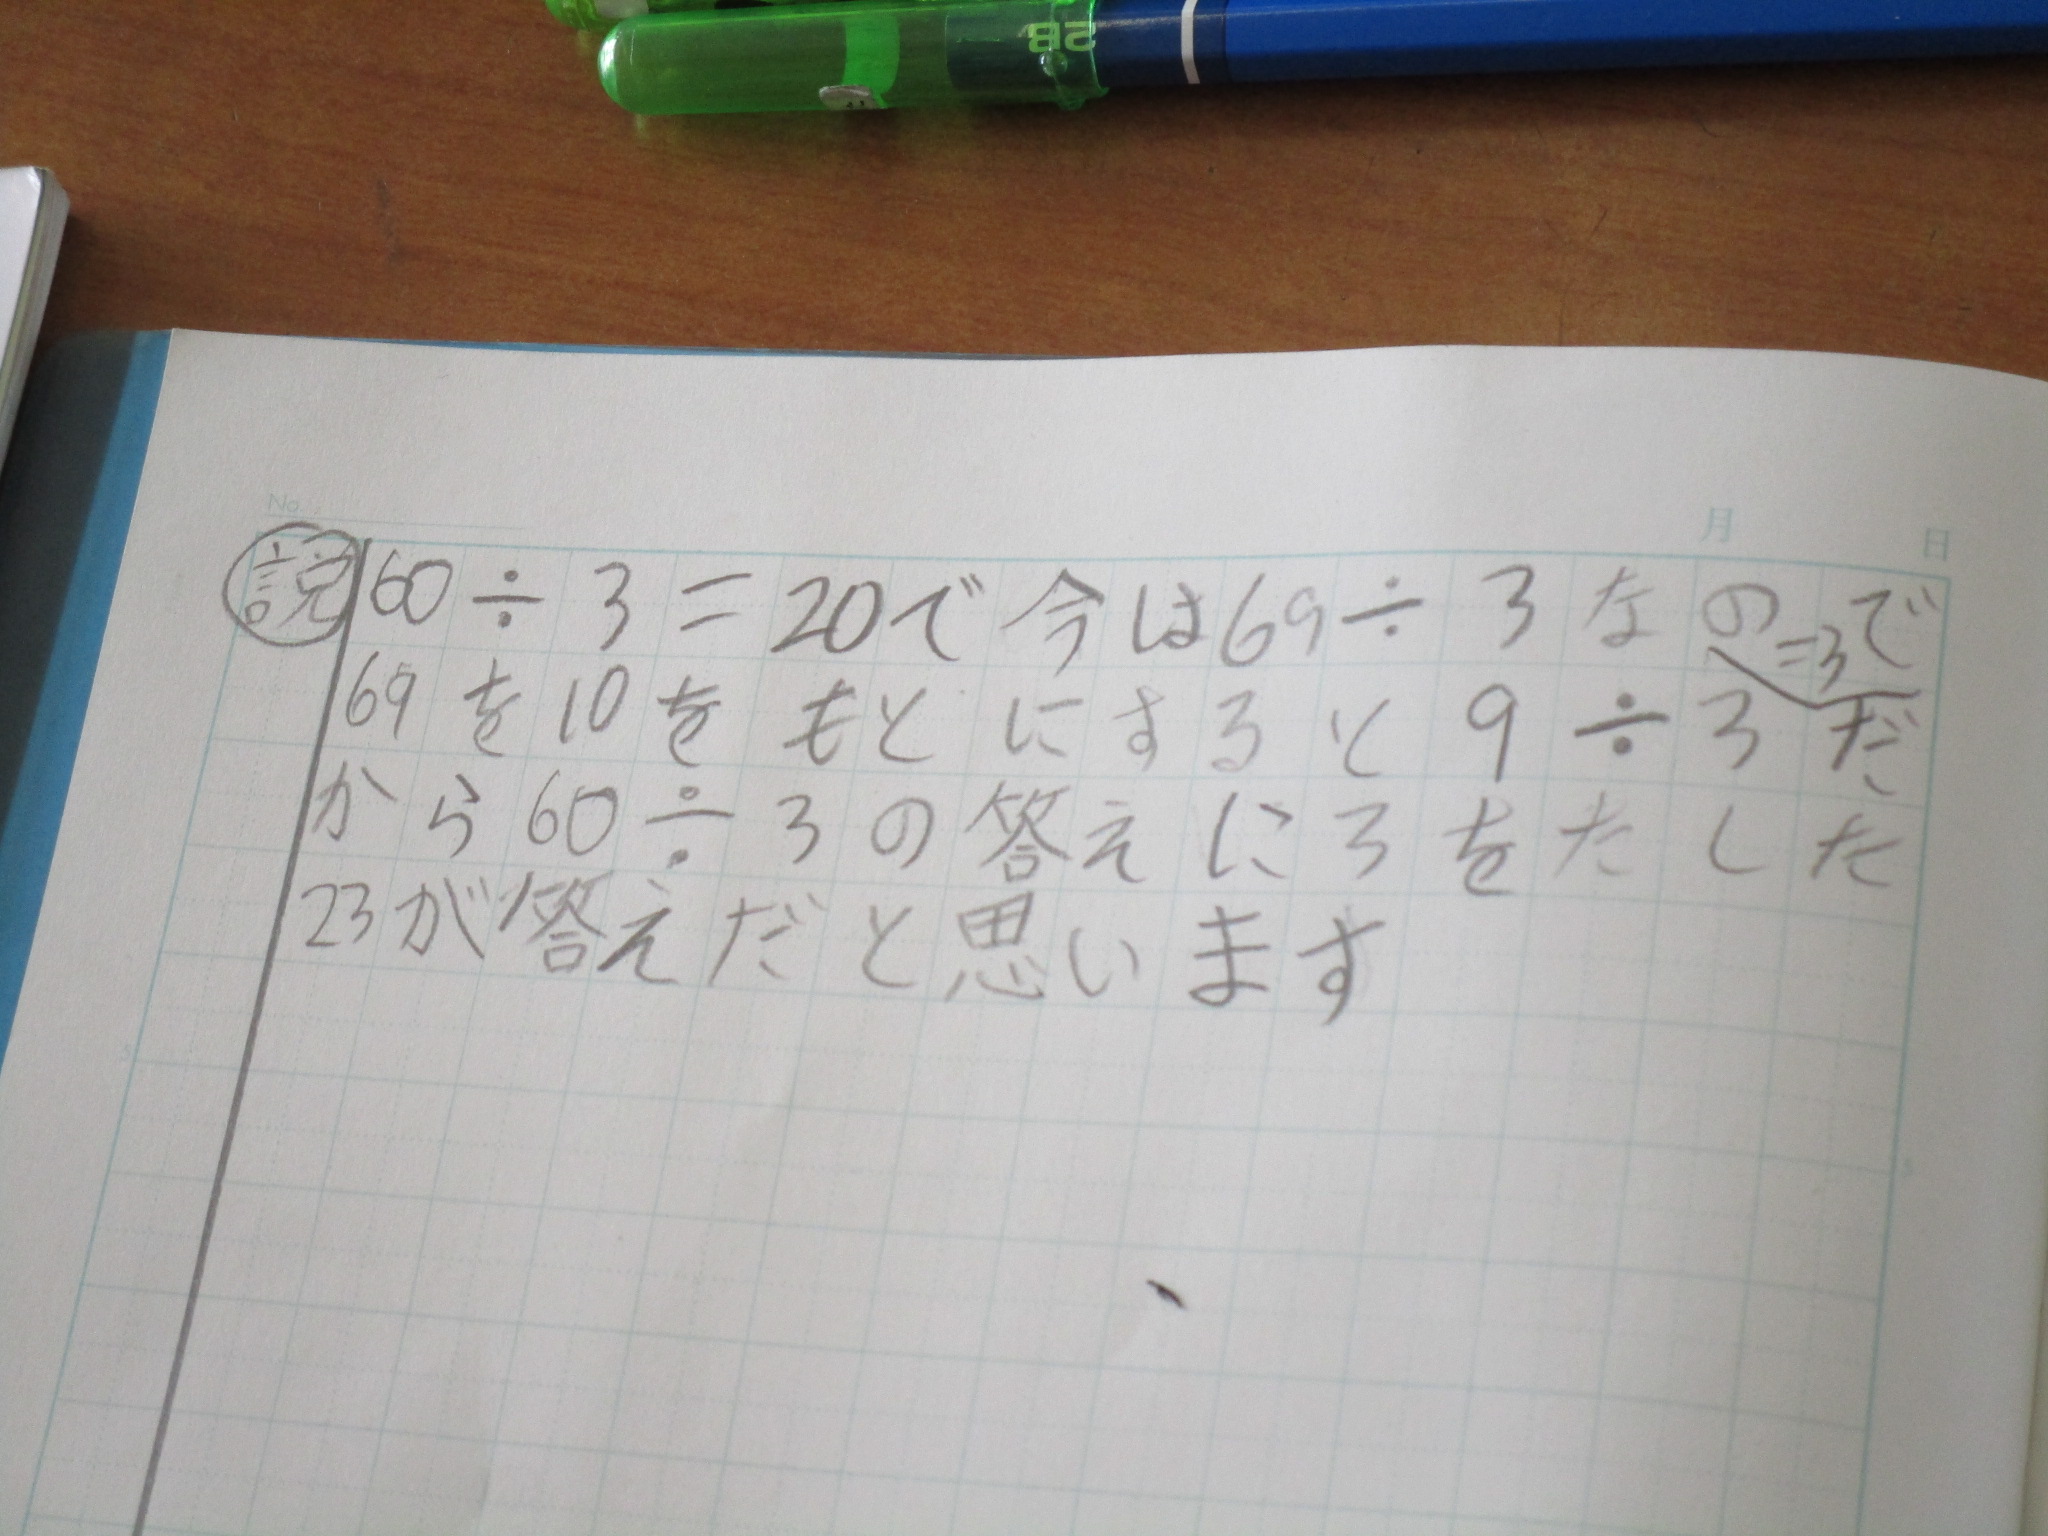 5B
No.
月 日
説 60÷3=20で今は69÷3なので
69を10をもとにすると9÷3=3だ
から60÷3の答えに3をたした
23が答えだと思います